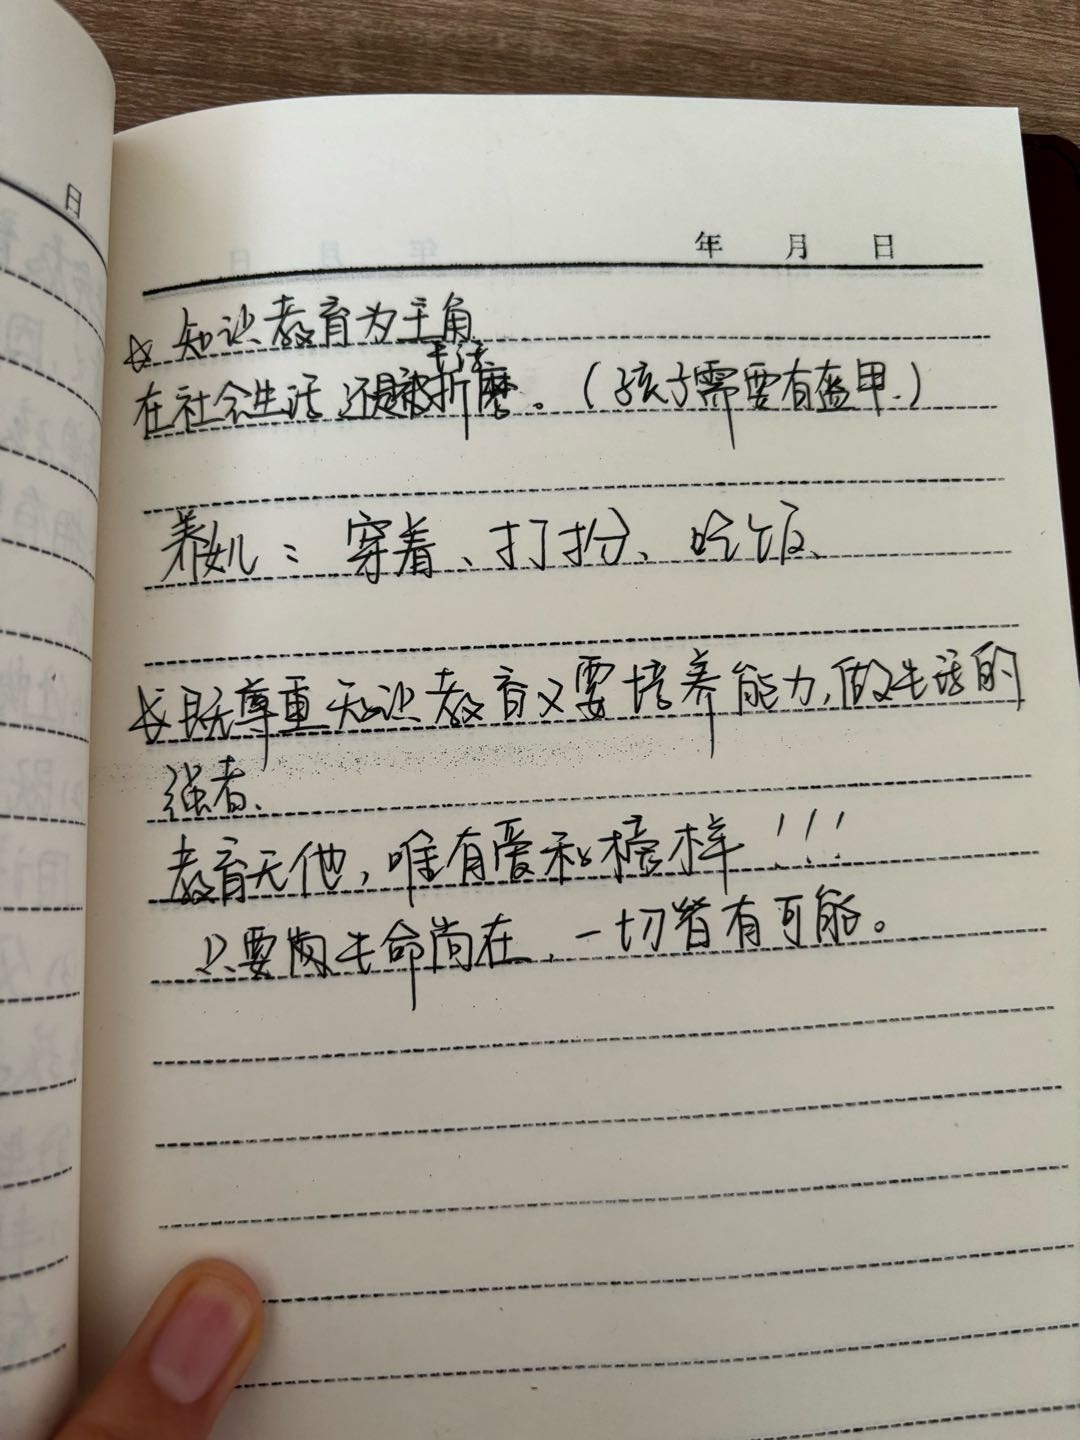 日
年 月 日
☆ 知识教育为主角
手法
在社会生活还是被折磨。(孩子需要有盔甲.)
养女儿：穿着、打扮、吃饭、
☆既尊重知识教育又要培养能力,做生活的
强者、
教育无他，唯有爱和榜样！！！
只要生命尚在，一切皆有可能。